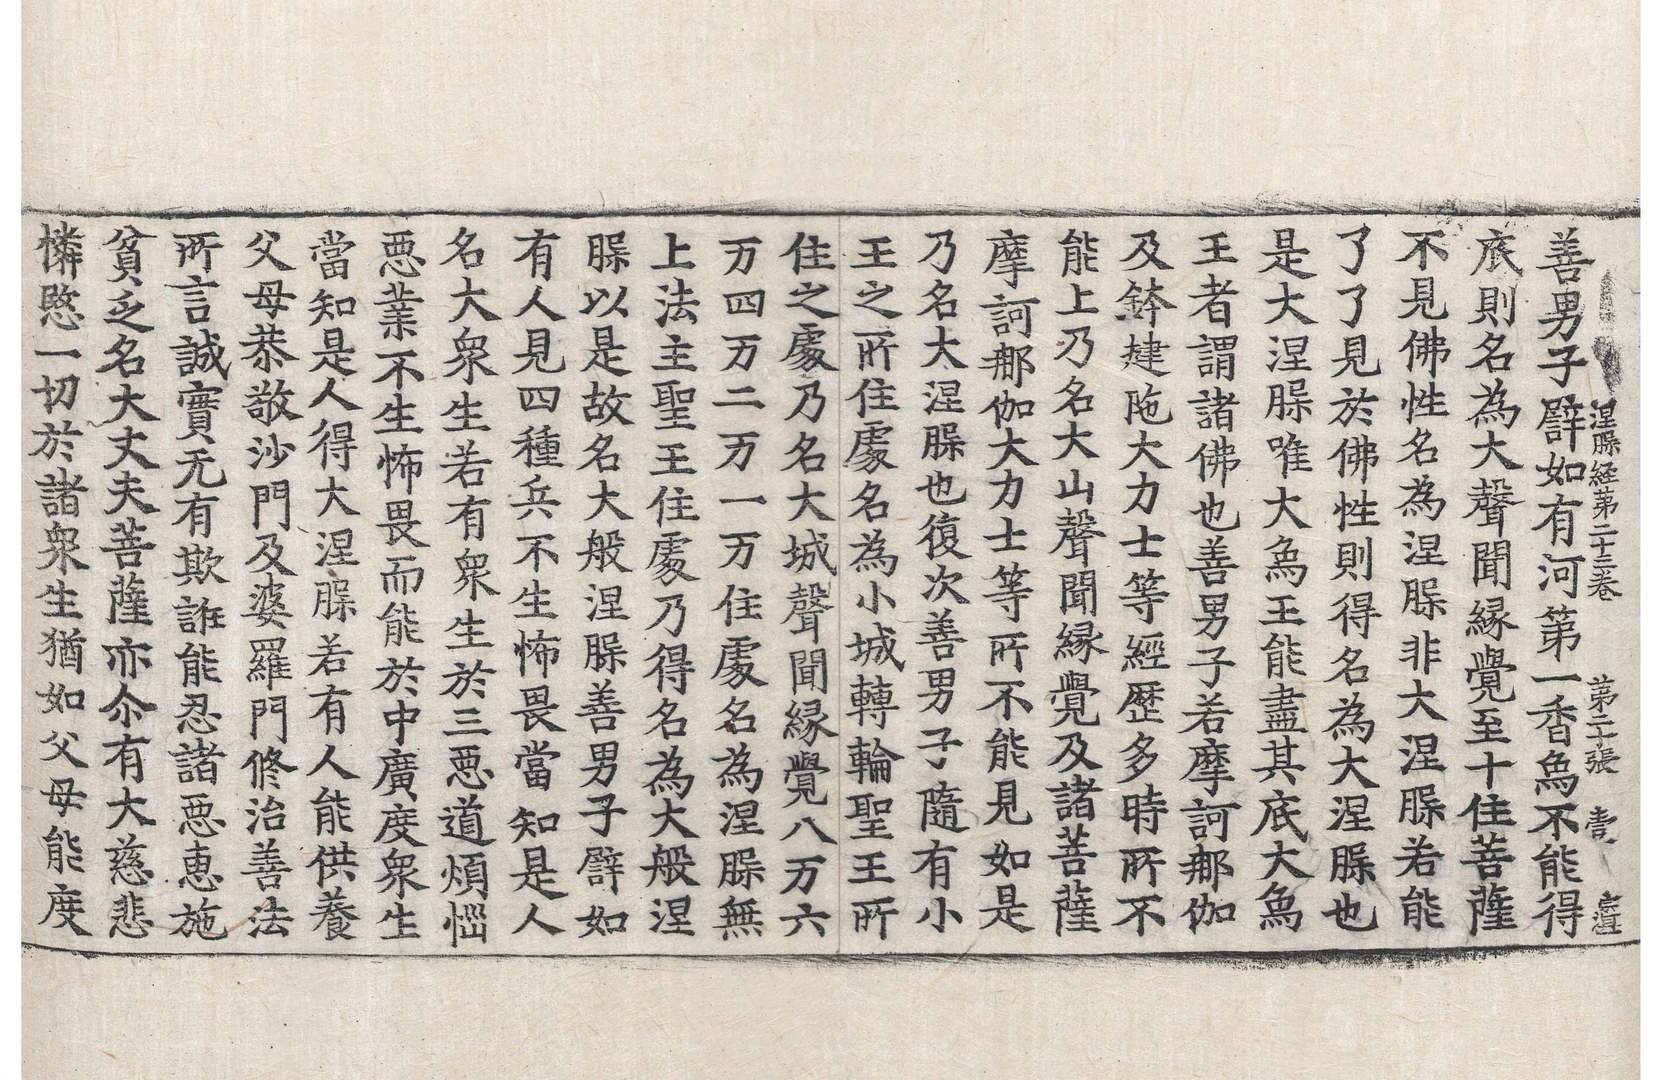 涅槃経第二十三卷　第二十張　壹
善男子譬如有河第一香象不能得
底則名為大聲聞緣覺至十住菩薩
不見佛性名為涅槃非大涅槃若能
了了見於佛性則得名為大涅槃也
是大涅槃唯大象王能盡其底大象
王者謂諸佛也善男子若摩訶那伽
及鉢揵陁大力士等經歷多時所不
能上乃名大山聲聞緣覺及諸菩薩
摩訶那伽大力士等所不能見如是
乃名大涅槃也復次善男子隨有小
王之所住處名為小城轉輪聖王所
住之處乃名大城聲聞緣覺八万六
万四万二万一万住處名為涅槃無
上法主聖王住處乃得名為大般涅
槃以是故名大般涅槃善男子譬如
有人見四種兵不生怖畏當知是人
名大衆生若有衆生於三惡道煩惱
惡業不生怖畏而能於中廣度衆生
當知是人得大涅槃若有人能供養
父母恭敬沙門及婆羅門修治善法
所言誠實无有欺誑能忍諸惡惠施
貧乏名大丈夫菩薩亦尒有大慈悲
憐愍一切於諸衆生猶如父母能度